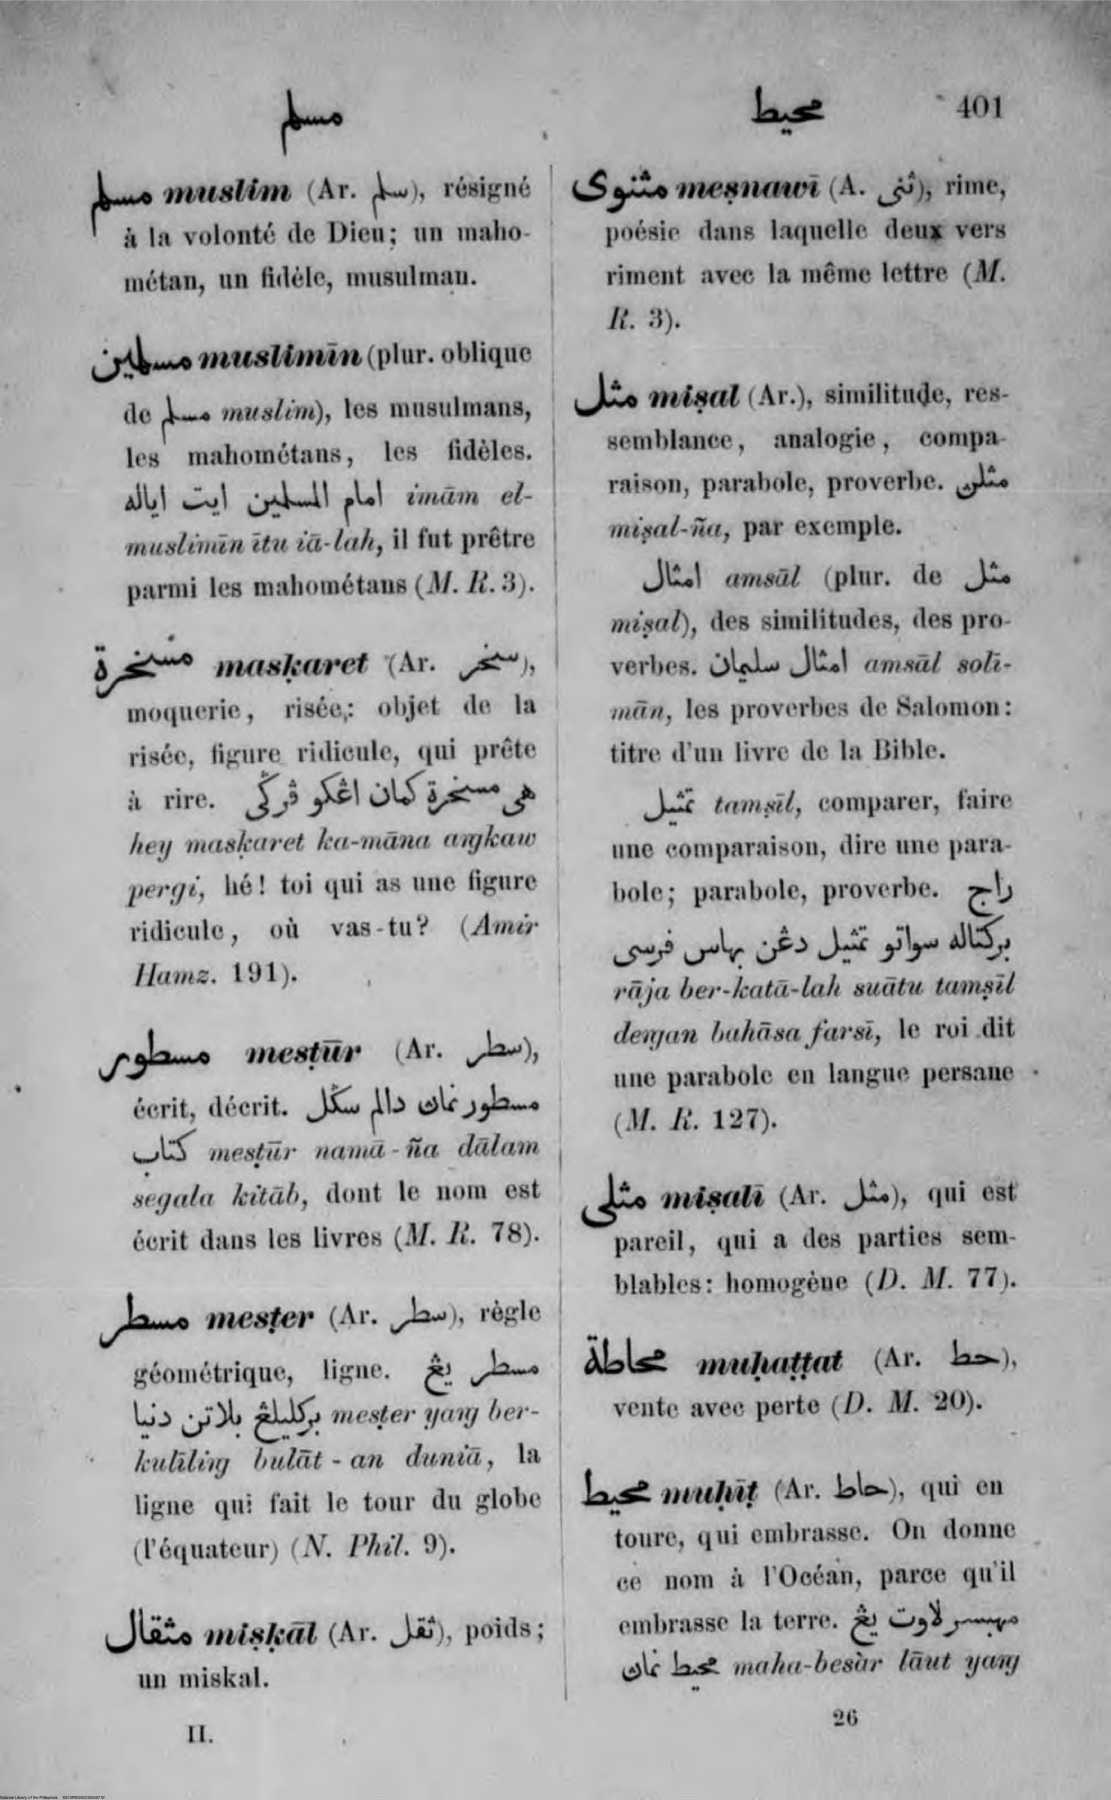 مسلم
محيط 401
مسلم muslim (Ar. سلم), résigné
à la volonté de Dieu; un maho-
métan, un fidèle, musulman.
مسلمين muslimīn (plur. oblique
de مسلم muslim), les musulmans,
les mahométans, les fidèles.
امام المسلمين ايت اياله imām el-
muslimīn ītu iā-lah, il fut prêtre
parmi les mahométans (M. R. 3).
مسخرة masḳaret (Ar. سخر),
moquerie, risée,: objet de la
risée, figure ridicule, qui prête
à rire. هى مسخرة كمان اڠكو ڤركى
hey masḳaret ka-māna aŋkaw
pergi, hé! toi qui as une figure
ridicule, où vas-tu? (Amir
Hamz. 191).
مسطور mesṭūr (Ar. سطر),
écrit, décrit. مسطور نمان دالم سكل
كتاب mesṭūr namā-ña dālam
segala kitāb, dont le nom est
écrit dans les livres (M. R. 78).
مسطر mesṭer (Ar. سطر), règle
géométrique, ligne. مسطر يڠ
بركليلڠ بلاتن دنيا mesṭer yaŋ ber-
kulīliŋ bulāt-an duniā, la
ligne qui fait le tour du globe
(l'équateur) (N. Phil. 9).
مثقال miṣḳāl (Ar. ثقل), poids;
un miskal.
II.
مثنوى meṣnawī (A. ثنى), rime,
poésie dans laquelle deux vers
riment avec la même lettre (M.
R. 3).
مثل miṣal (Ar.), similitude, res-
semblance, analogie, compa-
raison, parabole, proverbe. مثلن
miṣal-ña, par exemple.
امثال amsāl (plur. de مثل
miṣal), des similitudes, des pro-
verbes. امثال سليمان amsāl soli-
mān, les proverbes de Salomon:
titre d'un livre de la Bible.
تمثيل tamṣīl, comparer, faire
une comparaison, dire une para-
bole; parabole, proverbe. راج
بركتاله سواتو تمثيل دڠن بهاس فرسى
rāja ber-katā-lah suātu tamṣīl
deŋan bahāsa farsī, le roi dit
une parabole en langue persane
(M. R. 127).
مثلى miṣalī (Ar. مثل), qui est
pareil, qui a des parties sem-
blables: homogène (D. M. 77).
محاطة muḥaṭṭat (Ar. حط),
vente avec perte (D. M. 20).
محيط muḥīṭ (Ar. حاط), qui en
toure, qui embrasse. On donne
ce nom à l'Océan, parce qu'il
embrasse la terre. مهبسر لاوت يڠ
محيط نمان maha-besàr lāut yaŋ
26